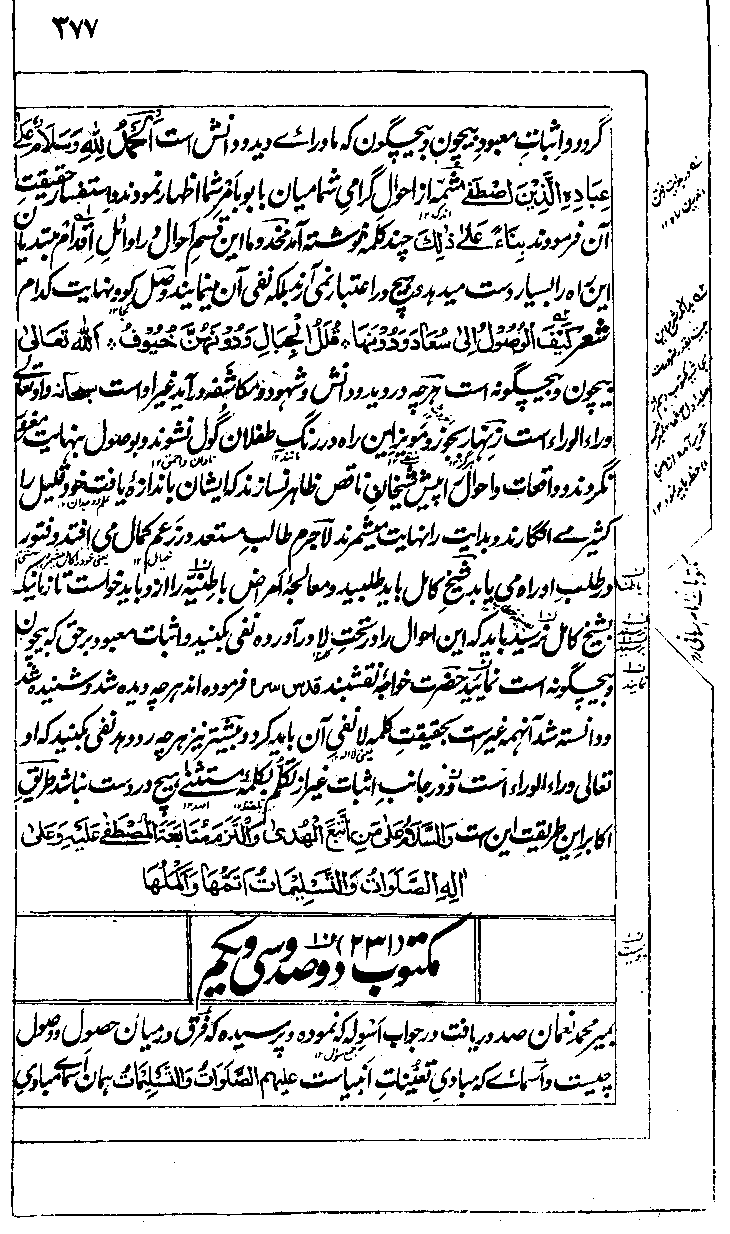 ۳۷۷
گردد و اثبات معبود بیچون و بیچگون که ماورائے دید و دانش است اَلْحَمْدُ لِلّٰهِ وَسَلَامٌ عَلٰی
عِبَادِهِ الَّذِیْنَ اصْطَفٰی شمهٔ از احوال گرامی شما میان بابو باقر شما اظهار نمودند و استفسار حقیقت
آن فرمودند بِنَاءً عَلٰی ذٰلِکَ چند کلمه نوشته آمد مخدوما این قسم احوال در اوائل اقدام مبتدیان
این راه را بسیار دست میدهد هیچ در اعتبار نمی آرند بلکه نفی آن مینمایند وصل کو و نهایت کدام
شعر کَیْفَ الْوُصُوْلُ اِلٰی سُعَادَ وَدُوْنَهَا ٭ قُلَلُ الْجِبَالِ وَدُوْنَهُنَّ خُیُوْفٌ ٭ اَللّٰه تعالٰی
بیچون و بیچگونه است هرچه در دید و دانش و شهود و مکاشفه درآید غیر اوست سبحانه و او تعالٰی
وراء الوراء است زنهار بجوز و مویز این راه در رنگ طفلان گول نشوند و بوصول نهایت مغرور
نگردند و واقعات و احوال را پیش شیخان ناقص ظاهر نسازند که ایشان باندازهٔ یافت خود قلیل را
کثیر مے انگارند و بدایت را نهایت میشمرند لاجرم طالب مستعد در زعم کمال می افتد و فتور
در طلب او راه می یابد شیخ کامل باید طلبید و معالجهٔ امراض باطنیه را ازو باید خواست تا زمانیکه
بشیخ کامل نرسید باید که این احوال را در تحت لا درآورده نفی بکنید و اثبات معبود برحق که بیچون
و بیچگونه است نمایید حضرت خواجه نقشبند قدس سره فرموده اند هرچه دیده شد و شنیده شد
و دانسته شد آنهمه غیرست بحقیقت کلمه لا نفی آن باید کرد و بیشتر نیز هرچه رو دهد نفی بکنید که او
تعالٰی وراء الوراء است و در جانب اثبات غیر از تکلم بکلمهٔ مستثنٰی هیچ در دست نباشد طریق
اکابر این طریقت این ست وَالسَّلَامُ عَلٰی مَنِ اتَّبَعَ الْهُدٰی وَالْتَزَمَ مُتَابَعَةَ الْمُصْطَفٰی عَلَیْهِ وَعَلٰی
اٰلِهِ الصَّلَوَاتُ وَالتَّسْلِیْمَاتُ اَتَمُّهَا وَاَکْمَلُهَا
مکتوب (۲۳۱) دو صد و سی و یکم
بمیر محمد نعمان صدور یافت در جواب اسوله که نموده و پرسیده که فرق در میان حصول و وصول
چیست و اسمائے که مبادی تعینات انبیاست علیهم الصَّلَوَاتُ وَالتَّسْلِیْمَاتُ همان اسمائے مبادی